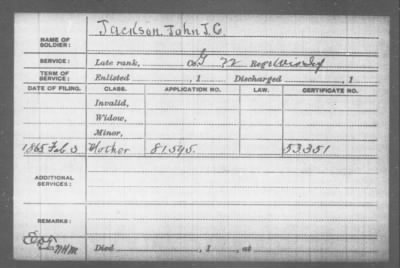 NAME OF SOLDIER: Jackson, John J. C.
SERVICE: Late rank, Co G 22 Reg't Wis Inf
TERM OF SERVICE: Enlisted , 1 Discharged , 1
DATE OF FILING. CLASS. APPLICATION NO. LAW. CERTIFICATE NO.
Invalid,
Widow,
Minor,
1865 Feb 3 Mother 81.595. 53351
ADDITIONAL SERVICES:
REMARKS:
Died , 1 , at